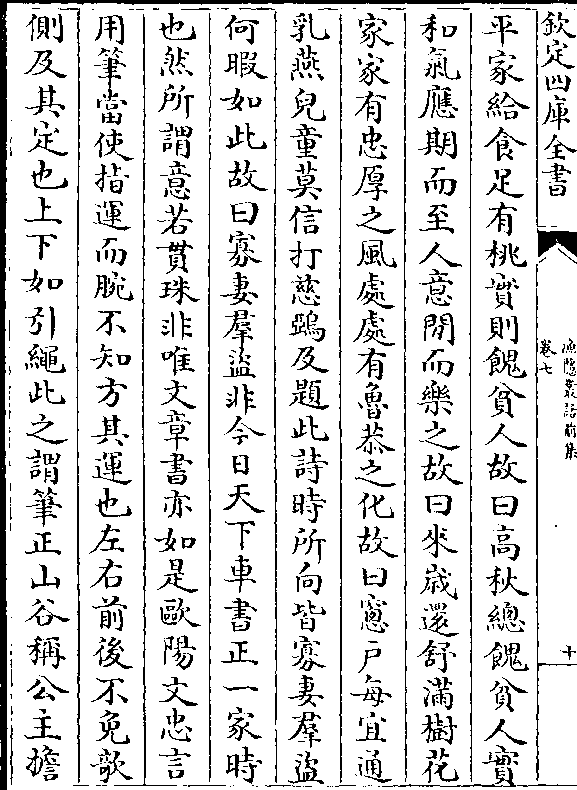 欽定四庫全書
漁隱叢話前集
卷七
十
平家給食足有桃實則餽貧人故曰高秋總餽貧人實
和氣應期而至人意閒而樂之故曰來歲還舒滿樹花
家家有忠厚之風處處有魯恭之化故曰窻戸每宜通
乳燕兒童莫信打慈鴉及題此詩時所向皆寡妻羣盜
何暇如此故曰寡妻羣盜非今日天下車書正一家時
也然所謂意若貫珠非唯文章書亦如是歐陽文忠言
用筆當使指運而腕不知方其運也左右前後不免欹
側及其定也上下如引繩此之謂筆正山谷稱公主擔